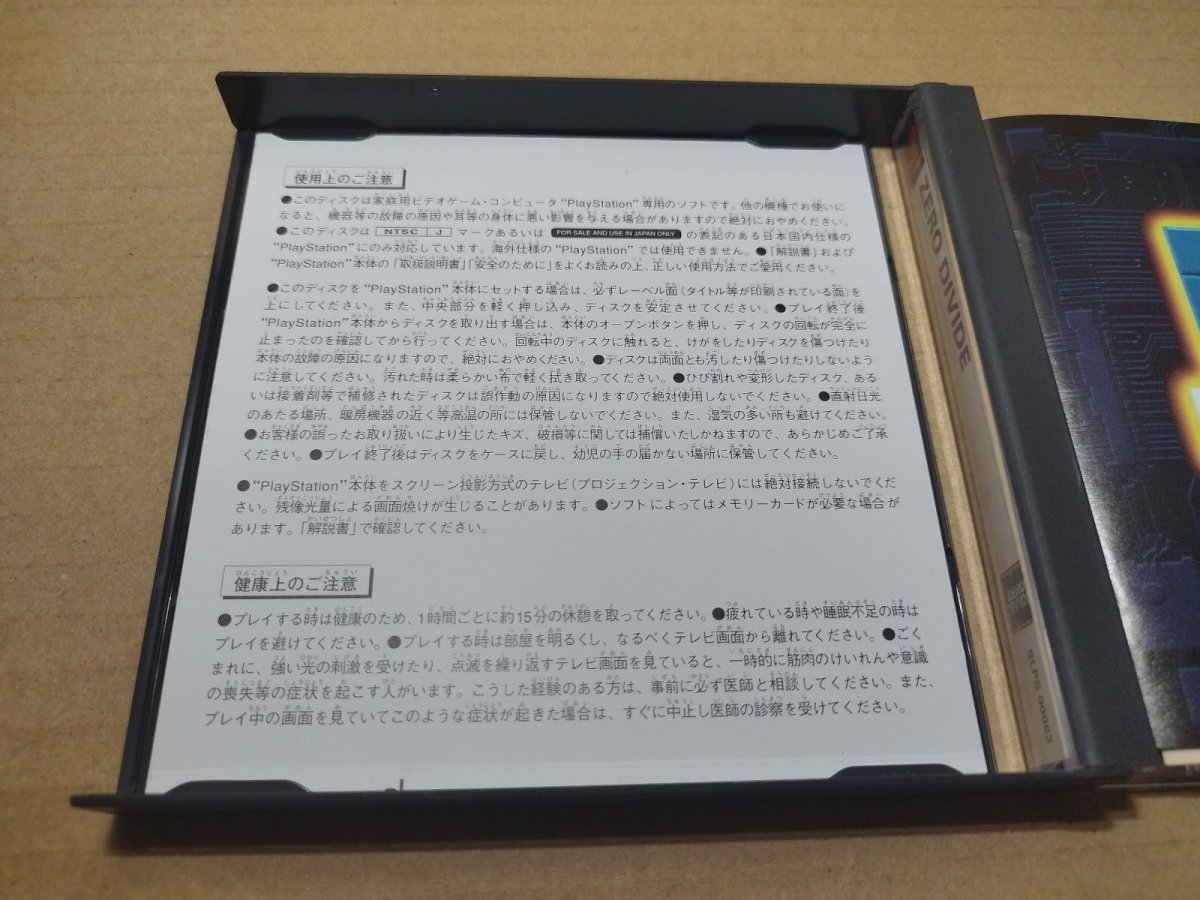 使用上のご注意
●このディスクは家庭用ビデオゲーム・コンピュータ“PlayStation”専用のソフトです。他の機種でお使いに
なると、機器等の故障の原因や耳等の身体に悪い影響を与える場合がありますので絶対におやめください。
●このディスクは NTSC J マークあるいは FOR SALE AND USE IN JAPAN ONLY の表記のある日本国内仕様の
“PlayStation”にのみ対応しています。海外仕様の“PlayStation”では使用できません。●「解説書」および
“PlayStation”本体の「取扱説明書」「安全のために」をよくお読みの上、正しい使用方法でご愛用ください。
●このディスクを“PlayStation”本体にセットする場合は、必ずレーベル面(タイトル等が印刷されている面)を
上にしてください。また、中央部分を軽く押し込み、ディスクを安定させてください。●プレイ終了後
“PlayStation”本体からディスクを取り出す場合は、本体のオープンボタンを押し、ディスクの回転が完全に
止まったのを確認してから行ってください。回転中のディスクに触れると、けがをしたりディスクを傷つけたり
本体の故障の原因になりますので、絶対におやめください。●ディスクは両面とも汚したり傷つけたりしないよう
に注意してください。汚れた時は柔らかい布で軽く拭き取ってください。●ひび割れや変形したディスク、ある
いは接着剤等で補修されたディスクは誤作動の原因になりますので絶対使用しないでください。●直射日光
のあたる場所、暖房機器の近く等高温の所には保管しないでください。また、湿気の多い所も避けてください。
●お客様の誤ったお取り扱いにより生じたキズ、破損等に関しては補償いたしかねますので、あらかじめご了承
ください。●プレイ終了後はディスクをケースに戻し、幼児の手の届かない場所に保管してください。
●“PlayStation”本体をスクリーン投影方式のテレビ(プロジェクション・テレビ)には絶対接続しないでくだ
さい。残像光量による画面焼けが生じることがあります。●ソフトによってはメモリーカードが必要な場合が
あります。「解説書」で確認してください。
健康上のご注意
●プレイする時は健康のため、1時間ごとに約15分の休憩を取ってください。●疲れている時や睡眠不足の時は
プレイを避けてください。●プレイする時は部屋を明るくし、なるべくテレビ画面から離れてください。●ごく
まれに、強い光の刺激を受けたり、点滅を繰り返すテレビ画面を見ていると、一時的に筋肉のけいれんや意識
の喪失等の症状を起こす人がいます。こうした経験のある方は、事前に必ず医師と相談してください。また、
プレイ中の画面を見ていてこのような症状が起きた場合は、すぐに中止し医師の診察を受けてください。
ZERO DIVIDE
SLPS 00083